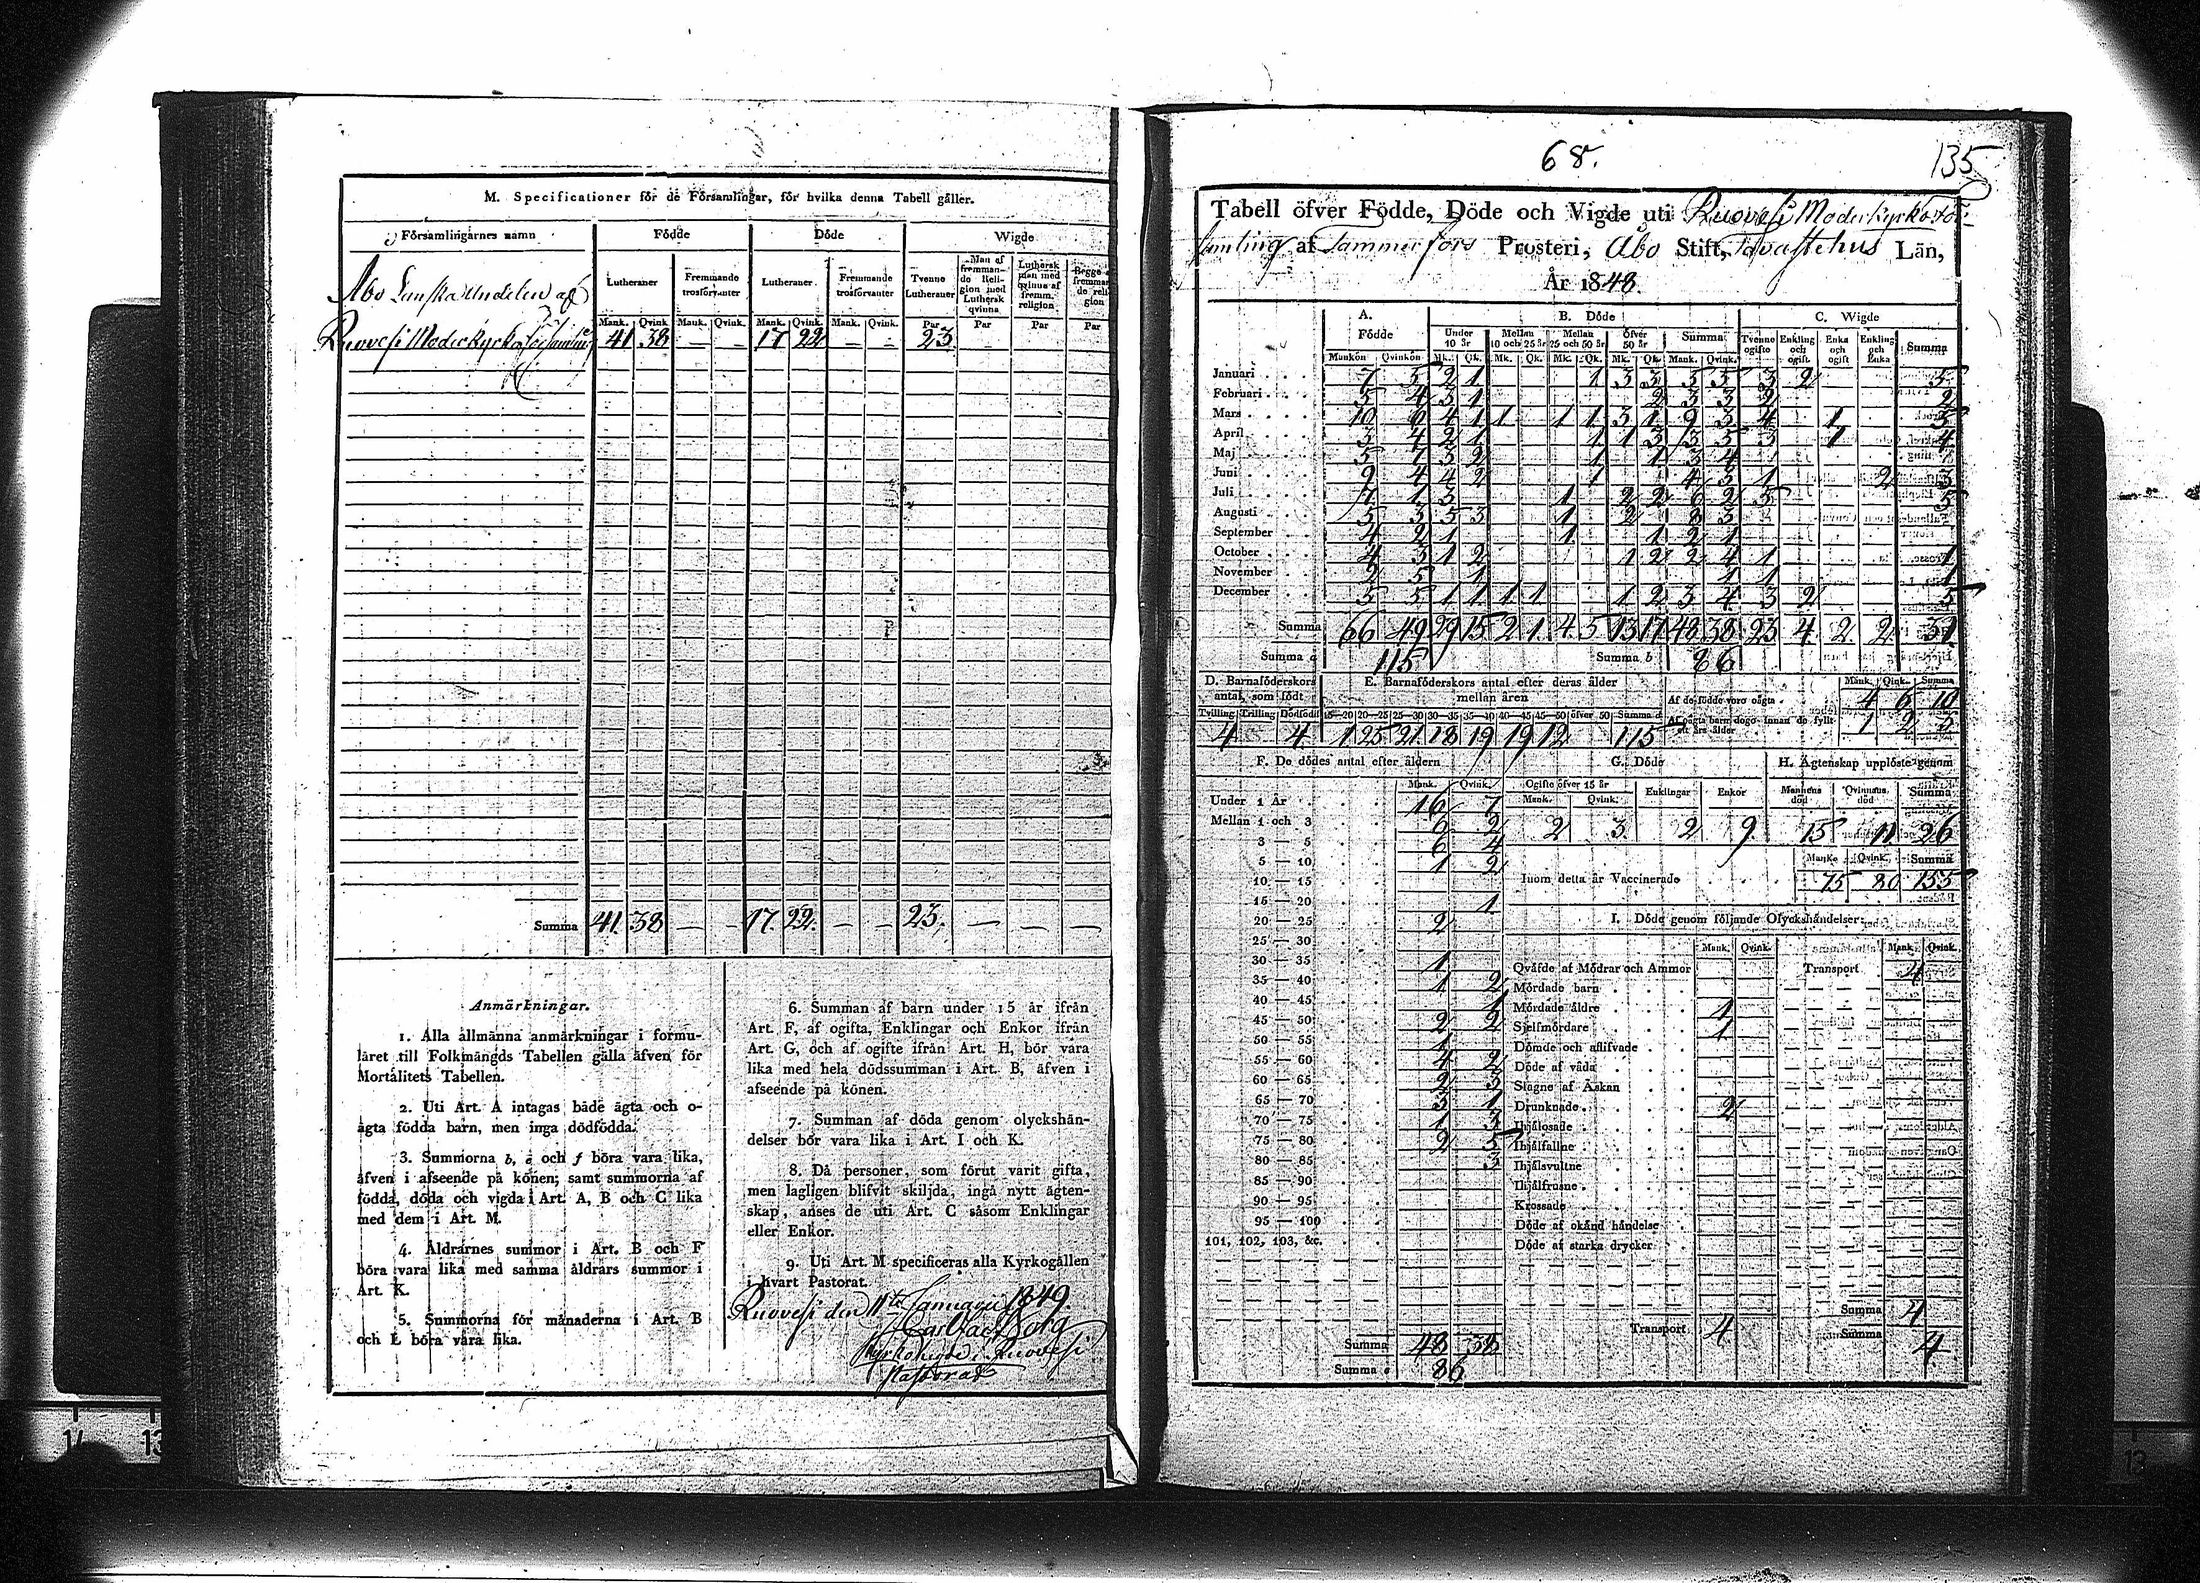 M. Specificationer för de Församlingar, för hvilka denna Tabell gäller.
Församlingarnes namn Födde Döde Wigde
Lutheraner Fremmande trosförvanter Lutheraner Fremmande trosförvanter Tvenne Lutheraner Man af fremmande Religion med Luthersk qvinna Luthersk man med qvinna af fremm. religion Begge af fremmande religion
Mank. Qvink. Mank. Qvink. Mank. Qvink. Mank. Qvink. Par Par Par Par
Åbo Länska andelen af
Ruovesi Moderkyrkoförsamling 41 38 — — 17 22 — — 23
Summa 41 38 — — 17 22 — — 23 — — —
Anmärkningar.
1. Alla allmänna anmärkningar i formu-
läret till Folkmängds Tabellen gälla äfven för
Mortalitets Tabellen.
2. Uti Art. A intagas både ägta och o-
ägta födda barn, men inga dödfödda.
3. Summorna b, e och f böra vara lika,
äfven i afseende på könen; samt summorna af
födda, döda och vigda i Art. A, B och C lika
med dem i Art. M.
4. Åldrarnes summor i Art. B och F
böra vara lika med samma åldrars summor i
Art. K.
5. Summorna för månaderna i Art. B
och L böra vara lika.
6. Summan af barn under 15 år ifrån
Art. F, af ogifta, Enklingar och Enkor ifrån
Art. G, och af ogifte ifrån Art. H, bör vara
lika med hela dödssumman i Art. B, äfven i
afseende på könen.
7. Summan af döda genom olyckshän-
delser bör vara lika i Art. I och K.
8. Då personer, som förut varit gifta,
men lagligen blifvit skiljda, ingå nytt ägten-
skap, anses de uti Art. C såsom Enklingar
eller Enkor.
9. Uti Art. M specificeras alla Kyrkogällen
i hvart Pastorat.
Ruovesi den 11te Januarii 1849.
Carl Jac. Borg
Kyrkoherde i Ruovesi
Pastorat
68.
135
Tabell öfver Födde, Döde och Vigde uti Ruovesi Moderkyrkoför-
samling af Tammerfors Prosteri, Åbo Stift, Tavastehus Län,
År 1848.
A. Födde B. Döde C. Wigde
Under 10 år Mellan 10 och 25 år Mellan 25 och 50 år Öfver 50 år Summa Tvenne ogifte Enkling och ogift Enka och ogift Enkling och Enka Summa
Mankön Qvinkön Mk. Qk. Mk. Qk. Mk. Qk. Mk. Qk. Mank. Qvink.
Januari 7 5 2 1 1 3 3 5 5 3 2 5
Februari 5 4 3 1 2 3 3 2 2
Mars 10 6 4 1 1 1 1 3 1 9 3 4 1 5
April 3 4 2 1 1 1 3 3 5 3 1 4
Maj 5 7 3 2 1 1 3 4
Juni 9 4 4 2 1 4 3 1 2 3
Juli 7 1 3 1 2 2 6 2 5 5
Augusti 5 3 5 3 1 2 8 3
September 4 2 1 1 1 2 1
October 4 3 1 2 1 2 2 4 1 1
November 2 5 1 1 1 1
December 5 5 1 1 1 1 1 2 3 4 3 2 5
Summa 66 49 29 15 2 1 4 5 13 17 48 38 23 4 2 2 31
Summa a 115 Summa b 86
D. Barnaföderskors antal, som födt E. Barnaföderskors antal efter deras ålder mellan åren
Tvilling Trilling Dödfödd 15—20 20—25 25—30 30—35 35—40 40—45 45—50 öfver 50 Summa
4 4 1 25 21 18 19 19 12 115
Mank. Qink. Summa
Af de födde voro oägta 4 6 10
Af oägta barn dogo innan de fyllt ett års ålder 1 2
F. De dödes antal efter åldern
Mank. Qvink.
Under 1 År 16 7
Mellan 1 och 3 6 2
3 — 5 6 4
5 — 10 1 2
10 — 15
15 — 20 1
20 — 25 2
25 — 30
30 — 35 1
35 — 40 1 2
40 — 45 1
45 — 50 2 2
50 — 55 1
55 — 60 4 2
60 — 65 2 3
65 — 70 3 1
70 — 75 1 3
75 — 80 2 5
80 — 85 3
85 — 90
90 — 95
95 — 100
101, 102, 103, &c.
Summa 48 38
Summa e 86
G. Döde
Ogifte öfver 15 år Enklingar Enkor
Mank. Qvink.
2 3 2 9
H. Ägtenskap upplöste genom
Mannens död Qvinnans död Summa
15 11 26
Mank. Qvink. Summa
Inom detta år Vaccinerade 75 80 155
I. Döde genom följande Olyckshändelser:
Mank. Qvink. Mank. Qvink.
Qväfde af Mödrar och Ammor Transport 4
Mördade barn
Mördade äldre 1
Sjelfmördare 1
Dömde och aflifvade
Döde af våda
Slagne af Åskan
Drunknade 2
Ihjälosade
Ihjälfallne
Ihjälsvultne
Ihjälfrusne
Krossade
Döde af okänd händelse
Döde af starka drycker
Transport 4
Summa 4
Summa 4
14 13
13